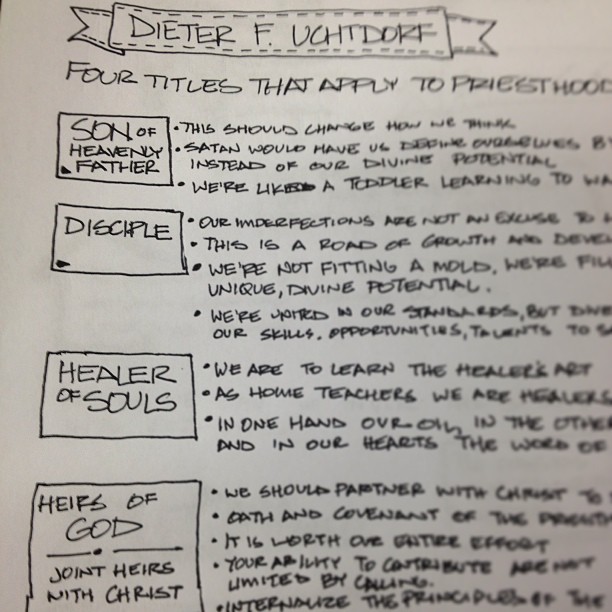 DIETER F. UCHTDORF
FOUR TITLES THAT APPLY TO PRIESTHOOD
SON OF
HEAVENLY
FATHER
• THIS SHOULD CHANGE HOW WE THINK
• SATAN WOULD HAVE US DEFINE OURSELVES B
INSTEAD OF OUR DIVINE POTENTIAL
• WE'RE LIKE A TODDLER LEARNING TO WA
DISCIPLE
• OUR IMPERFECTIONS ARE NOT AN EXCUSE TO
• THIS IS A ROAD OF GROWTH AND DEVE
• WE'RE NOT FITTING A MOLD, WE'RE FIL
UNIQUE, DIVINE POTENTIAL.
• WE'RE UNITED IN OUR STANDARDS, BUT DIVE
OUR SKILLS, OPPORTUNITIES, TALENTS TO S
HEALER
OF SOULS
• WE ARE TO LEARN THE HEALER'S ART
• AS HOME TEACHERS WE ARE HEALERS
• IN ONE HAND OUR OIL, IN THE OTHE
AND IN OUR HEARTS THE WORD OF
HEIRS OF
GOD
JOINT HEIRS
WITH CHRIST
• WE SHOULD PARTNER WITH CHRIST TO
• OATH AND COVENANT OF THE PRIEST
• IT IS WORTH OUR ENTIRE EFFORT
• YOUR ABILITY TO CONTRIBUTE ARE NOT
LIMITED BY CALLING.
• INTERNALIZE THE PRINCIPLES OF THE